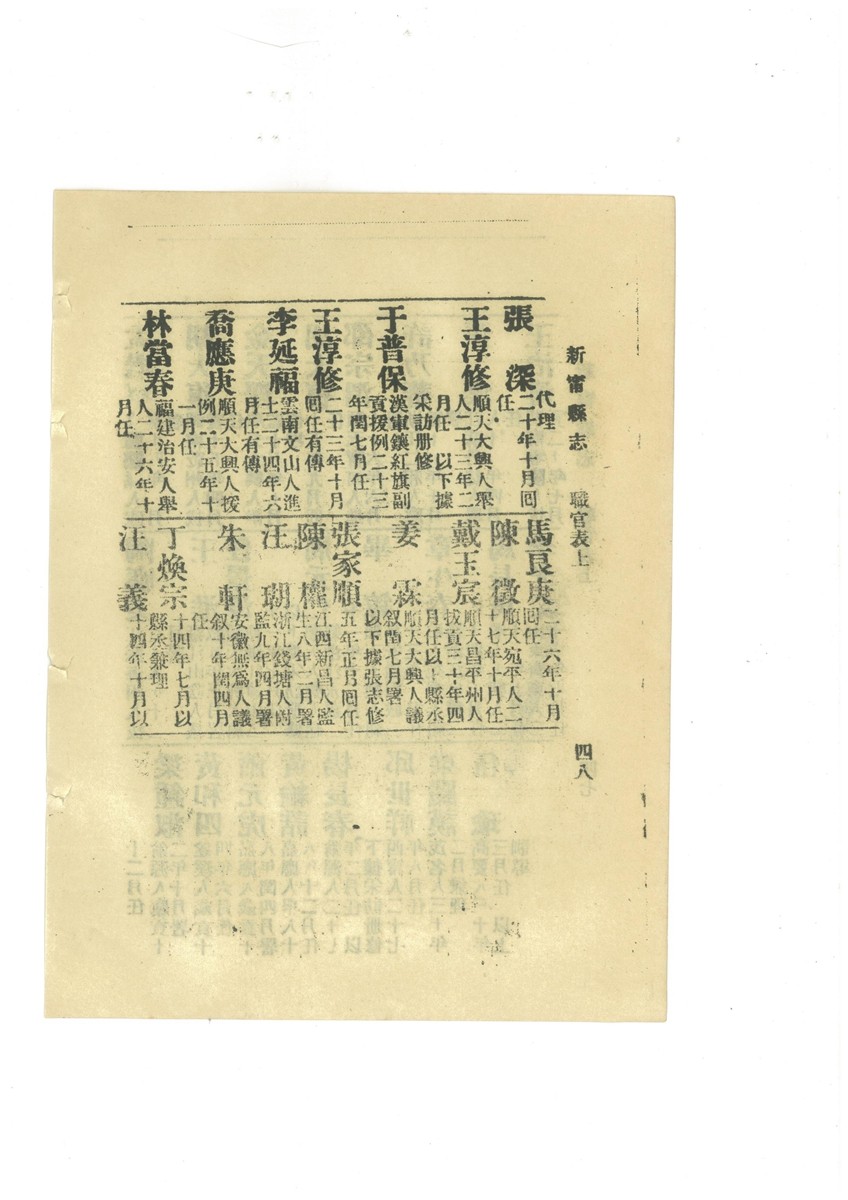 新甯縣志
職官表上
四八
張深
代理
二十年十月回
任
王淳修
順天大興人舉
人二十三年二
月任 以下據
采訪册修
于普保
漢軍鑲紅旗副
貢援例二十三
年閏七月任
王淳修
二十三年十月
回任有傳
李延福
雲南文山人進
士二十四年六
月任有傳
喬應庚
順天大興人援
例二十五年十
一月任
林當春
福建治安人舉
人二十六年十
月任
馬良庚
二十六年十月
回任
陳徵
順天宛平人二
十七年十月任
戴玉宸
順天昌平州人
拔貢三十年四
月任以上縣丞
姜霖
順天大興人議
叙閏七月署
以下據張志修
張家順
五年正月回任
陳權
江西新昌人監
生八年二月署
汪瑚
浙江錢塘人附
監九年四月署
朱軒
安徽無爲人議
叙十年閏四月
任
丁煥宗
十四年七月以
縣丞兼理
汪義
十四年十月以